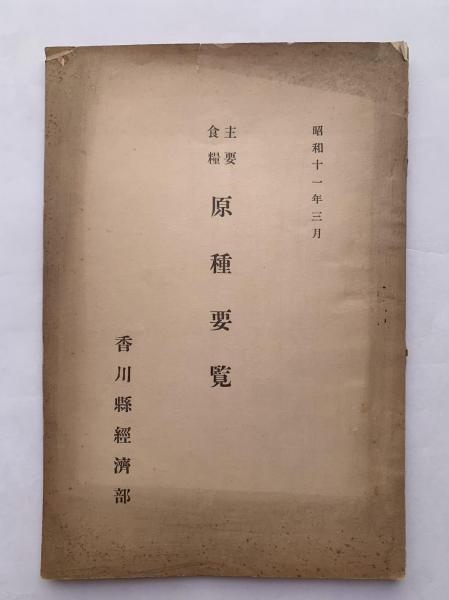 昭和十一年三月
主要
食糧
原種要覧
香川縣經濟部